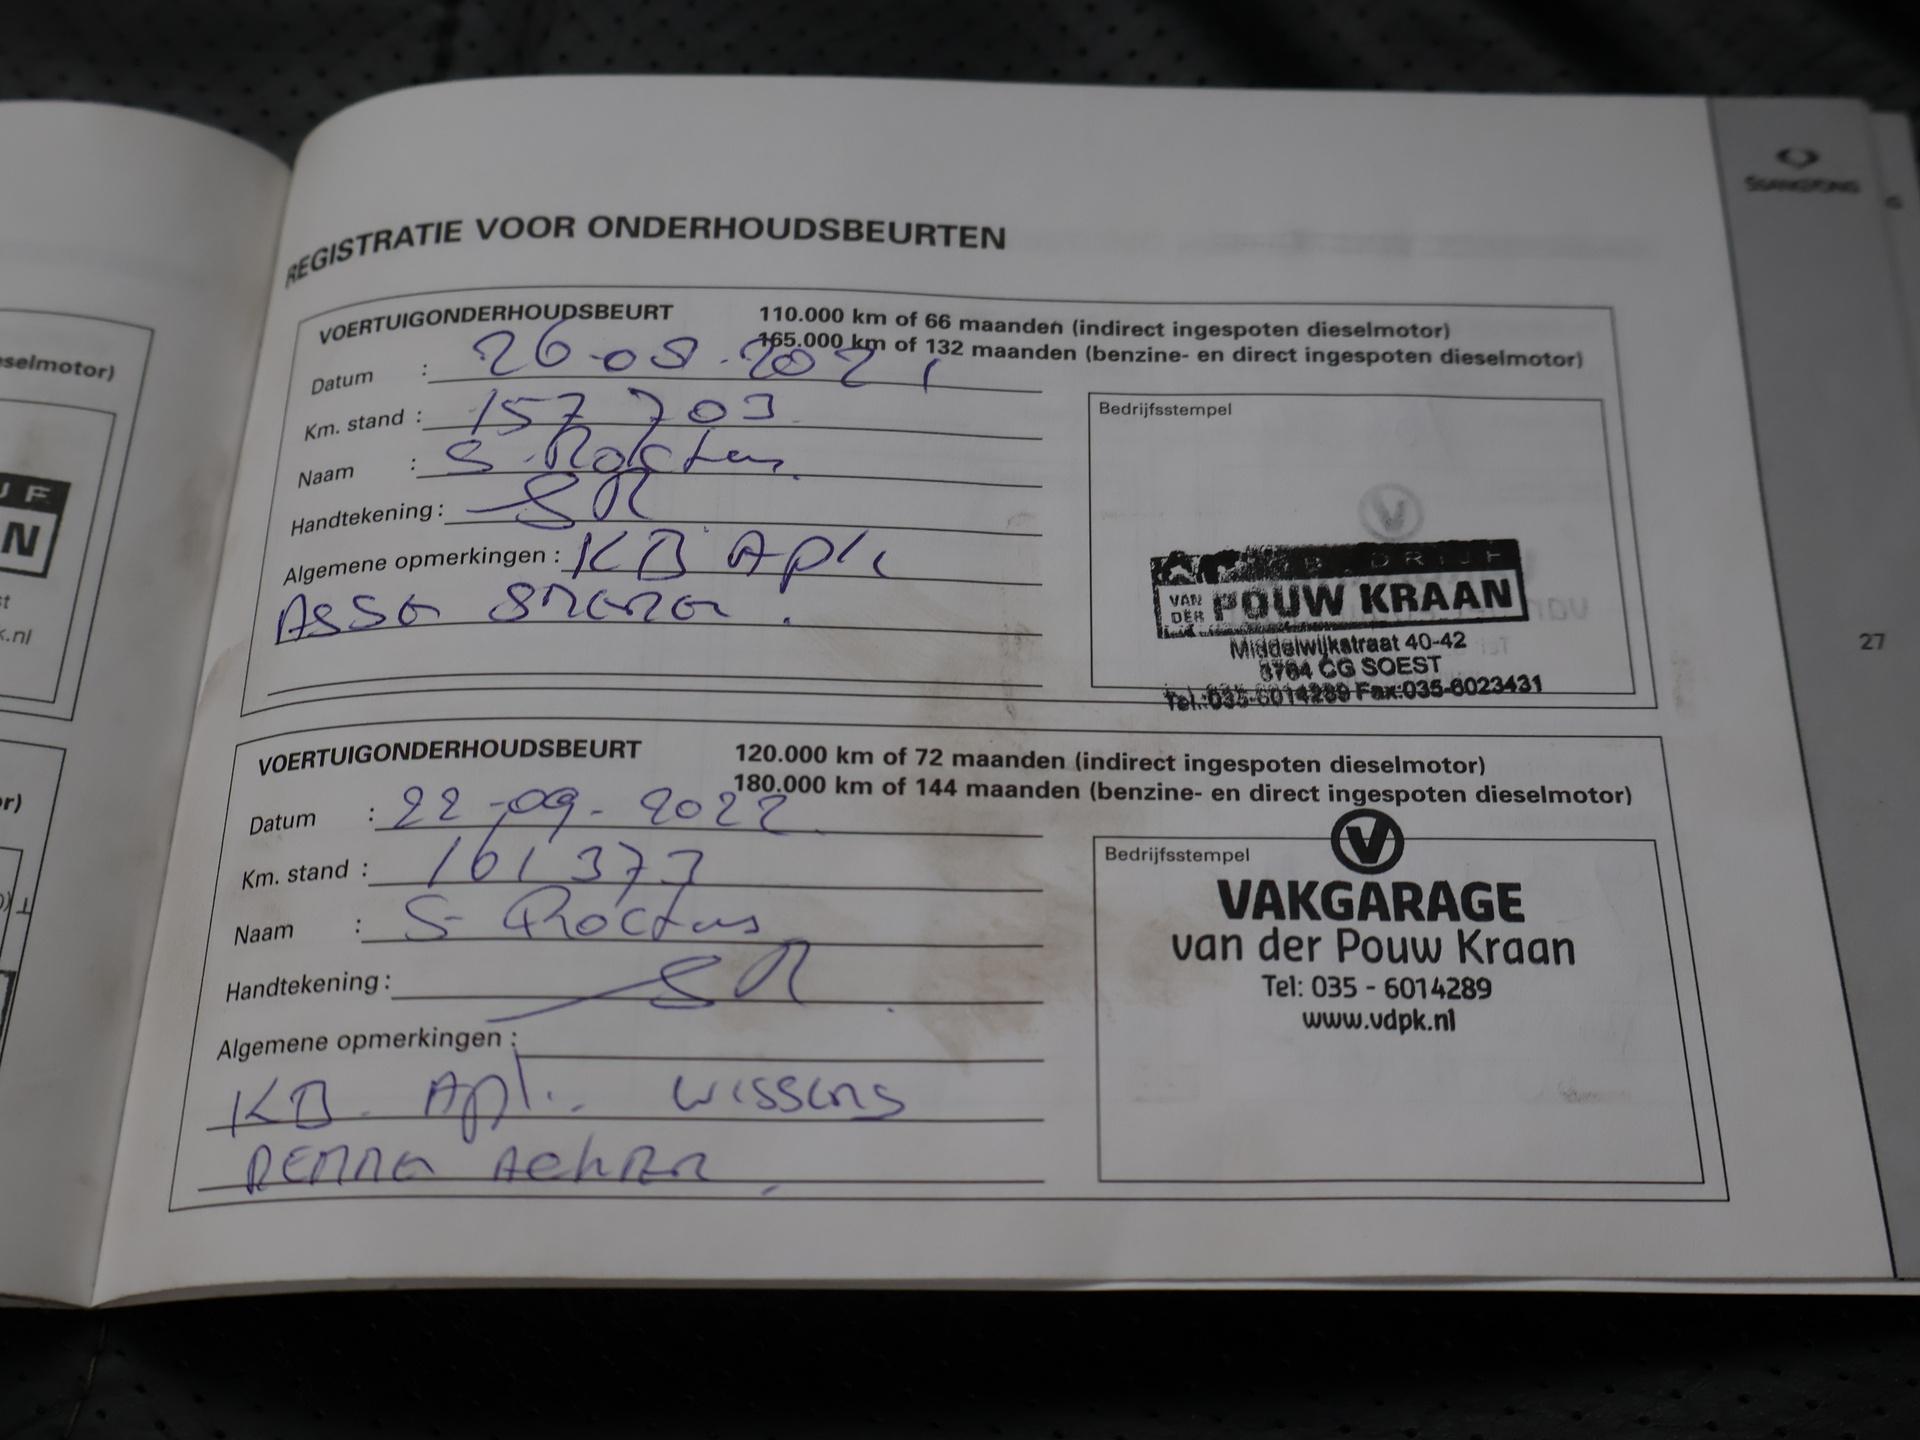 SSANGYONG
REGISTRATIE VOOR ONDERHOUDSBEURTEN
VOERTUIGONDERHOUDSBEURT
110.000 km of 66 maanden (indirect ingespoten dieselmotor)
165.000 km of 132 maanden (benzine- en direct ingespoten dieselmotor)
Datum : 26-08-2021
Km. stand : 157 703
Naam : S.
Handtekening : SR
Algemene opmerkingen : KB Apk
Bedrijfsstempel
BEDRIJF
VAN DER POUW KRAAN
Middelwijkstraat 40-42
3764 CG SOEST
Tel.:035-6014289 Fax:035-6023431
27
VOERTUIGONDERHOUDSBEURT
120.000 km of 72 maanden (indirect ingespoten dieselmotor)
180.000 km of 144 maanden (benzine- en direct ingespoten dieselmotor)
Datum : 22-09-2022
Km. stand : 161 373
Naam : S
Handtekening : SR
Algemene opmerkingen :
KB. Apk. wissers
Remmen Achter
Bedrijfsstempel
VAKGARAGE
van der Pouw Kraan
Tel: 035 - 6014289
www.vdpk.nl
selmotor)
JF
N
k.nl